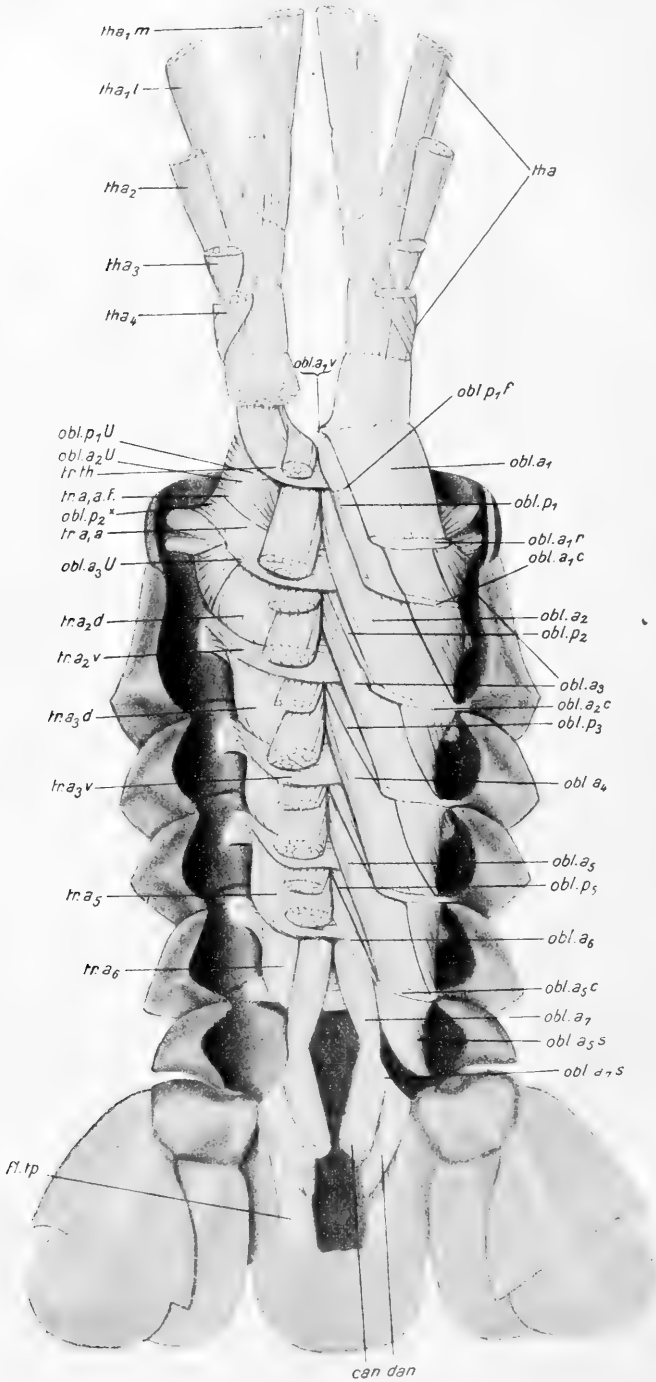 tha₁ m
tha₁ l
tha₂
tha₃
tha₄
tha
obl.a₁v
obl.p₁f
obl.p₁U
obl.a₂U
tr.th
tr.a₁a.f.
obl.p₂ˣ
tr.a₁a
obl.a₃U
tr.a₂d
tr.a₂v
tr.a₃d
tr.a₃v
tr.a₅
tr.a₆
fl.tp
obl.a₁
obl.p₁
obl.a₁r
obl.a₁c
obl.a₂
obl.p₂
obl.a₃
obl.a₂c
obl.p₃
obl.a₄
obl.a₅
obl.p₅
obl.a₆
obl.a₅c
obl.a₇
obl a₅s
obl a₇s
can dan